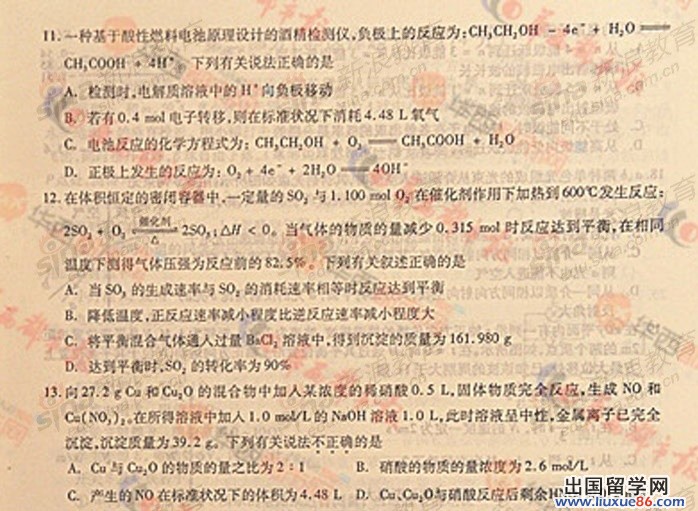 11. 一种基于酸性燃料电池原理设计的酒精检测仪,负极上的反应为:CH₃CH₂OH − 4e⁻ + H₂O ══
CH₃COOH + 4H⁺。下列有关说法正确的是
A. 检测时,电解质溶液中的 H⁺ 向负极移动
B. 若有 0.4 mol 电子转移,则在标准状况下消耗 4.48 L 氧气
C. 电池反应的化学方程式为: CH₃CH₂OH + O₂ ══ CH₃COOH + H₂O
D. 正极上发生的反应为: O₂ + 4e⁻ + 2H₂O ══ 4OH⁻
12. 在体积恒定的密闭容器中,一定量的 SO₂ 与 1.100 mol O₂ 在催化剂作用下加热到 600℃ 发生反应:
2SO₂ + O₂ ⇌ 催化剂 △ 2SO₃; ΔH < 0。当气体的物质的量减少 0.315 mol 时反应达到平衡,在相同
温度下测得气体压强为反应前的 82.5%。下列有关叙述正确的是
A. 当 SO₃ 的生成速率与 SO₂ 的消耗速率相等时反应达到平衡
B. 降低温度,正反应速率减小程度比逆反应速率减小程度大
C. 将平衡混合气体通入过量 BaCl₂ 溶液中,得到沉淀的质量为 161.980 g
D. 达到平衡时,SO₂ 的转化率为 90%
13. 向 27.2 g Cu 和 Cu₂O 的混合物中加入某浓度的稀硝酸 0.5 L,固体物质完全反应,生成 NO 和
Cu(NO₃)₂。在所得溶液中加入 1.0 mol/L 的 NaOH 溶液 1.0 L,此时溶液呈中性,金属离子已完全
沉淀,沉淀质量为 39.2 g。下列有关说法不正确的是
A. Cu 与 Cu₂O 的物质的量之比为 2 : 1 B. 硝酸的物质的量浓度为 2.6 mol/L
C. 产生的 NO 在标准状况下的体积为 4.48 L D. Cu、Cu₂O 与硝酸反应后剩余
出国留学网
www.liuxue86.com